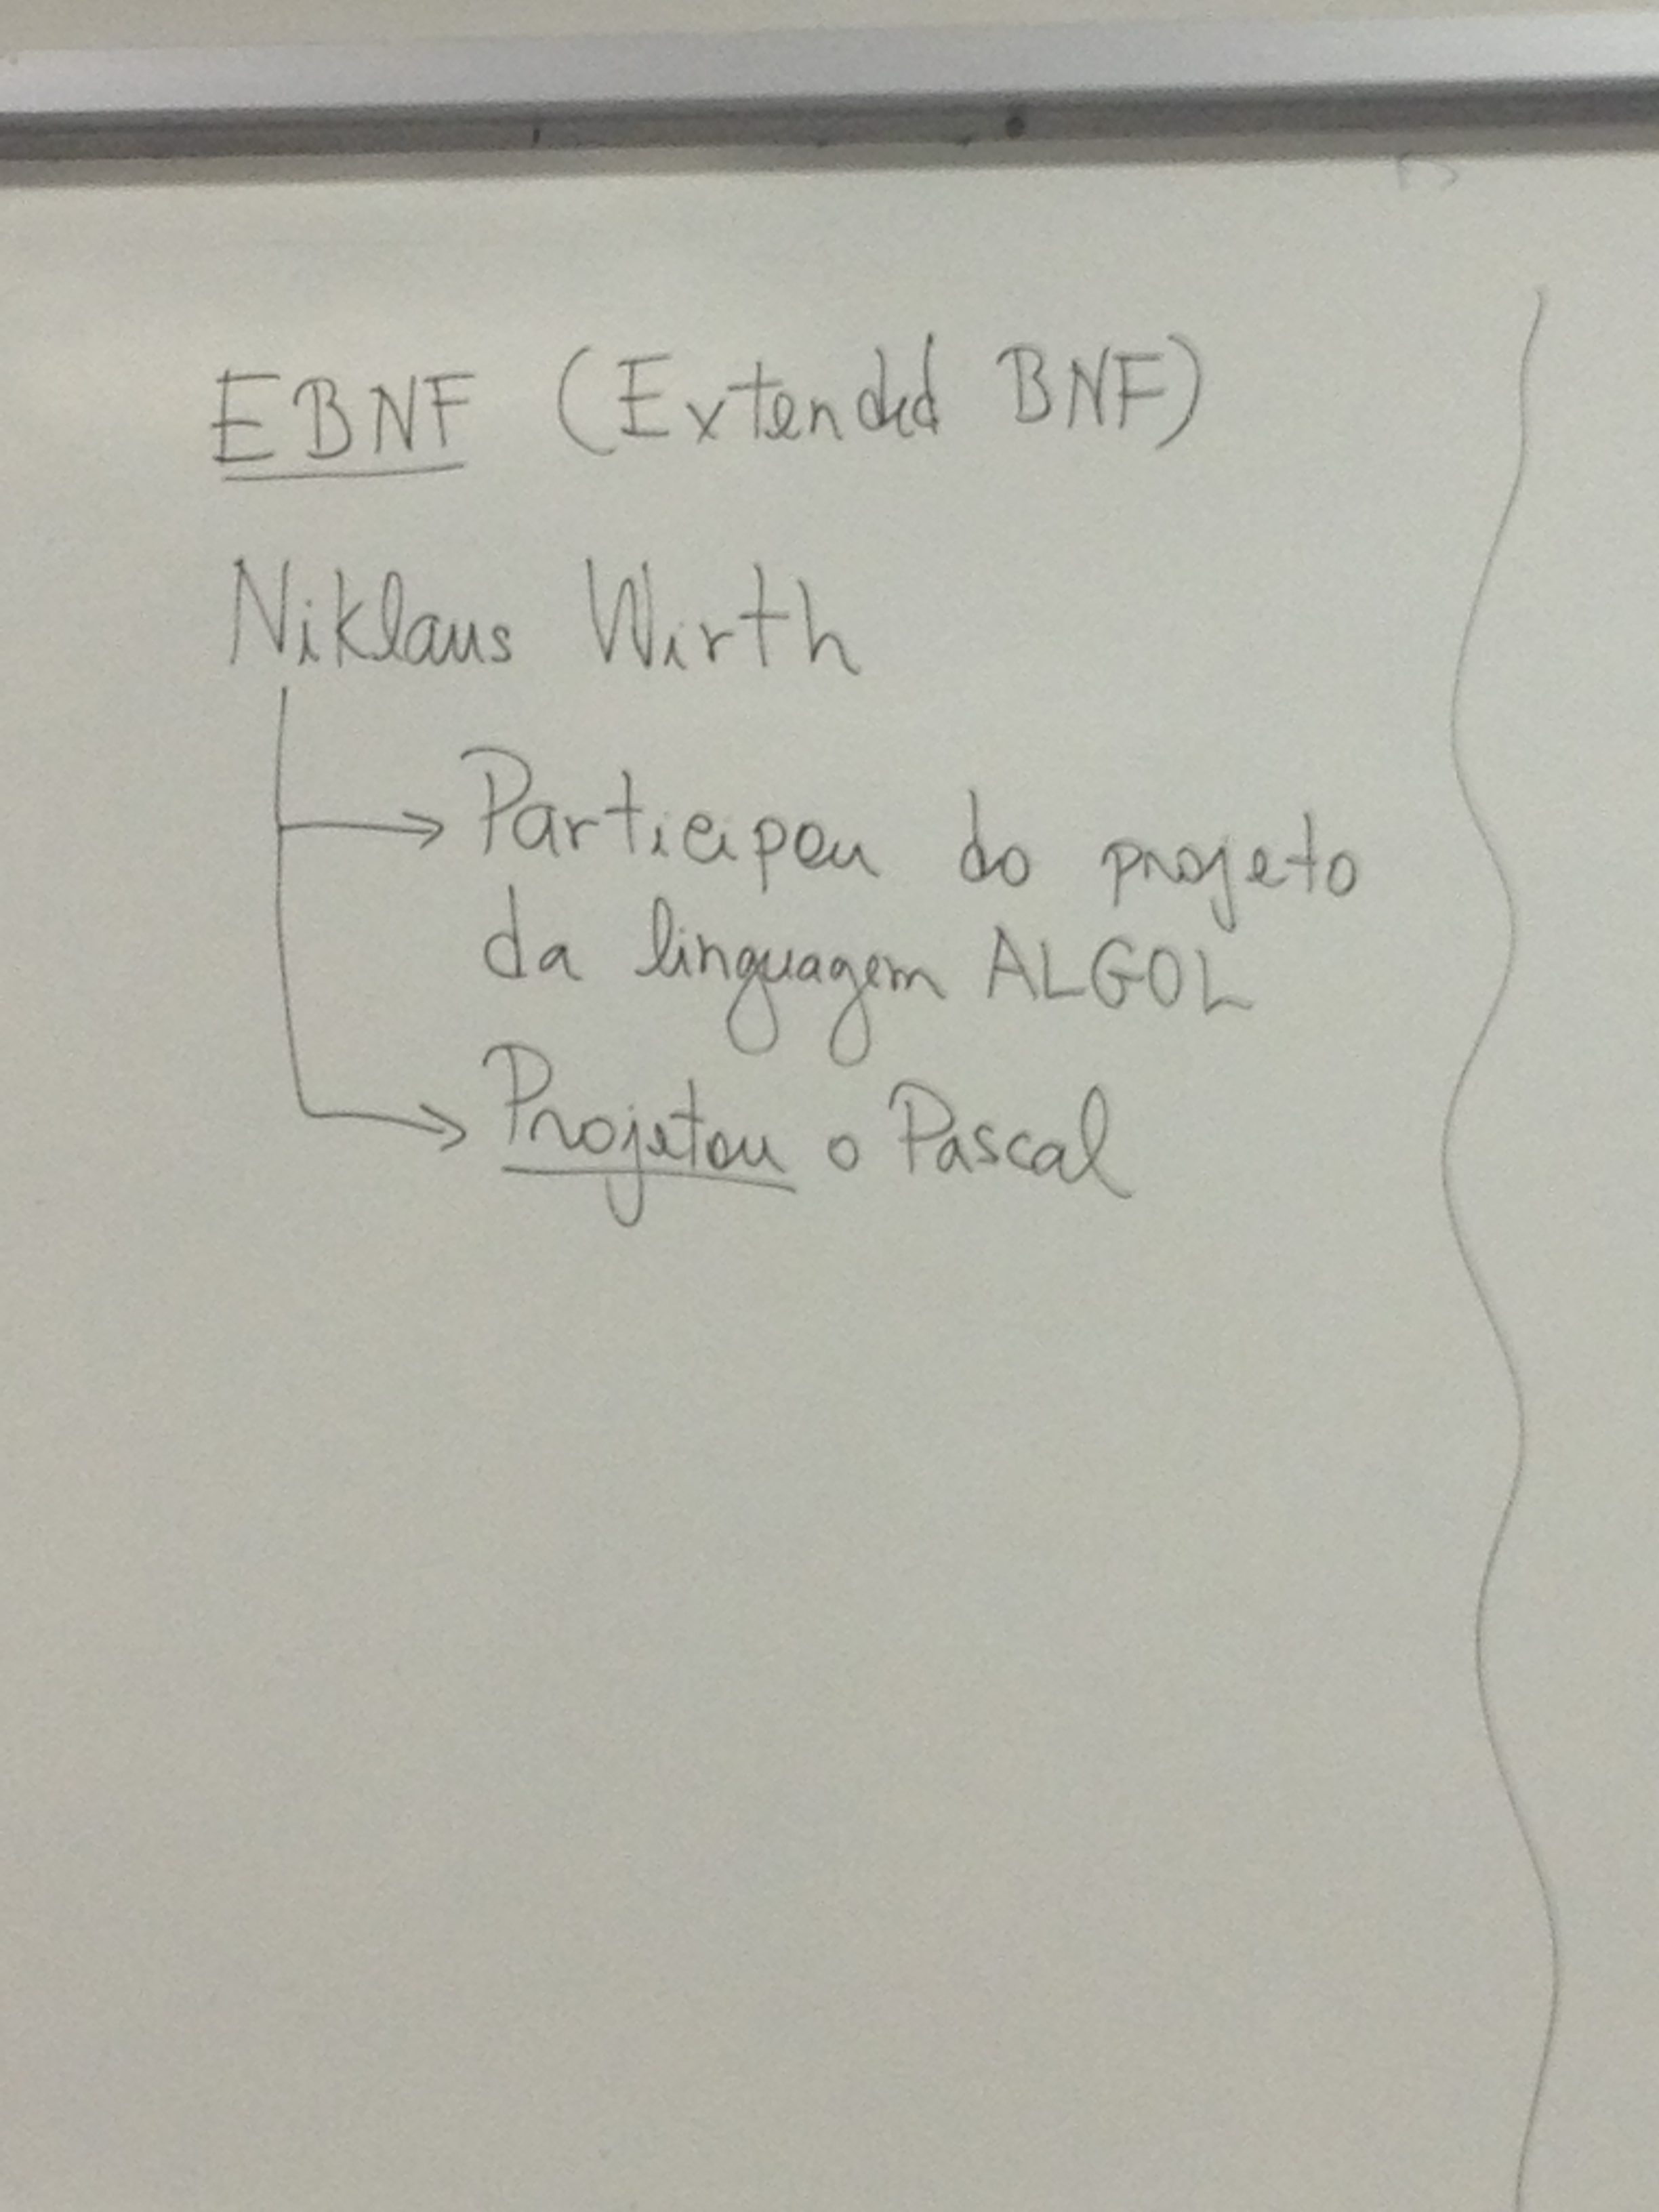 EBNF (Extended BNF)
Niklaus Wirth
Participou do projeto
da linguagem ALGOL
Projetou o Pascal